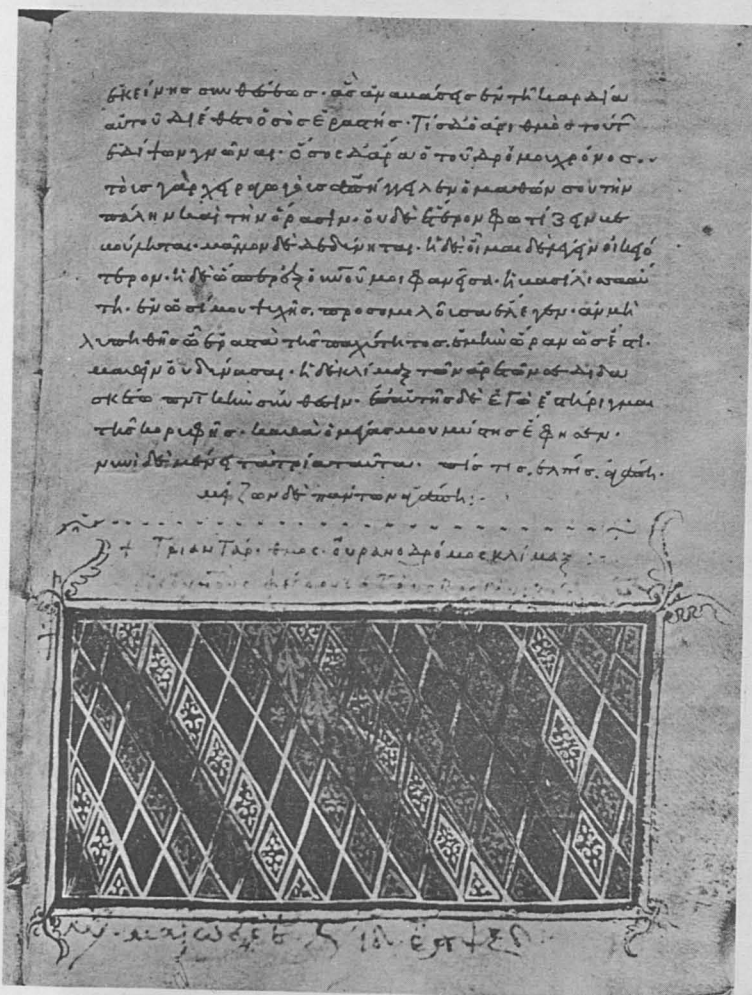 ἐκείνης συνθέσεως · ἃς ἀναβάσεις ἐν τῇ καρδία
αὐτοῦ διέθετο ὁ σὸς ἐραστής · Τίς δὲ ὁ ἀριθμὸς τούτ
ἐδίψων γνῶναι · πόσος δὲ ἄρα ὁ τοῦ δρόμου χρόνος ·
τοῖς γὰρ χειραγωγοῖς ἀπήγγειλεν ὁ μαθών σου τὴν
πάλην καὶ τὴν ὅρασιν · οὐδὲ ἕτερον φωτίζειν κε
κούμισται · μᾶλλον δὲ δεδύνηται · ἡ δὲ · οἶμαι δὲ οἰκειό
τερον · ἡ δὲ ὥσπερ ἐξ οὐνοῦ μοι φανεῖσα · ἡ βασίλισσα αὕ
τη · ἐν ὠσί μου ψυχῆς · προσομιλοῦσα ἔλεγεν · ἂν μὴ
λυθῆς ὦ ἐραστὰ τῆς παχύτητος · ἐμὴν ὥραν ὡς ἔστι ·
μαθεῖν οὐ δύνασαι · ἡ δὲ κλίμαξ τῶν ἀρετῶν σε διδα
σκέτω τὴν σύνθεσιν · ἐπαὐτῆς δὲ ἐγὼ ἐστήριγμαι
τῆς κορυφῆς · καθὰ ὁ μέγας μου μύστης ἔφησεν ·
νυνὶ δὲ μένει τὰ τρία ταῦτα · πίστις · ἐλπίς · ἀγάπη ·
μείζων δὲ πάντων ἡ ἀγάπη :·
+ Τριαντάριθμος · οὐρανοδρόμος κλίμαξ :·